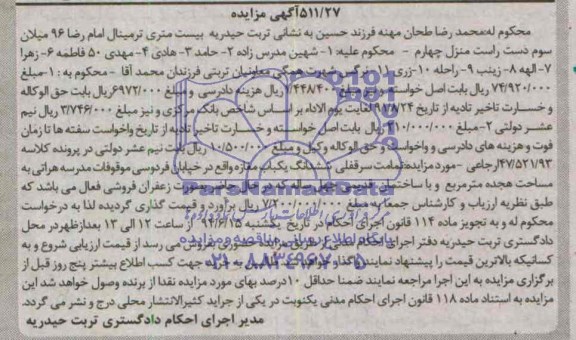 ۵۱۱/۲۷آگهی مزایده
محکوم له:محمد رضا طحان مهنه فرزند حسین به نشانی تربت حیدریه بیست متری ترمینال امام رضا ۹۶ میلان
سوم دست راست منزل چهارم - محکوم علیه: ۱- شهین مدرس زاده ۲- حامد ۳- هادی ۴- مهدی ۵۰ فاطمه ۶- زهرا
۷- الهه ۸- زینب ۹- راحله ۱۰- زری ۱۱- شهرت همگی معاونیان تربتی فرزندان محمد آقا - محکوم به : ۱-مبلغ
۷۴/۹۲۰/۰۰۰ ریال بابت اصل خواسته ۱/۴۴۸/۴۰۰ ریال هزینه دادرسی و مبلغ ۶۹۷۲/۰۰۰ریال بابت حق الوکاله
و خسارت تاخیر تادیه از تاریخ لغایت یوم الاداء بر اساس شاخص بانک مرکزی و نیز مبلغ ۳/۷۴۶/۰۰۰ ریال نیم
عشر دولتی ۲-مبلغ ریال بابت اصل خواسته و خسارت تاخیر تادیه از تاریخ واخواست سفته ها تا زمان
فوت و هزینه های دادرسی و واخواست و حق الوکاله وکیل و مبلغ ۱۰/۵۰۰/۰۰۰ ریال بابت نیم عشر دولتی در پرونده کلاسه
۴۷/۵۲۱/۹۳ارجاعی -مورد مزایده:تمامت سرقفلی ششدانگ یکباب مغازه واقع در خیابان فردوسی موقوفات مدرسه هراتی به
مساحت هجده مترمربع و با ساختمان ساله که در حال حاضر زعفران فروشی فعال می باشد که
طبق نظریه ارزیاب و کارشناس جمعا به مبلغ ۷/۲۰۰/۰۰۰/۰۰۰ ریال برآورد و قیمت گذاری گردیده لذا به درخواست
محکوم له و به تجویز ماده ۱۱۴ قانون اجرای احکام در تاریخ یکشنبه ۹۴/۶/۱۵ از ساعت ۱۲ الی ۱۳ بعدازظهر در محل
دادگستری تربت حیدریه دفتر اجرای احکام از طریق مزایده به فروش می رسد از قیمت ارزیابی شروع و به
کسانیکه بالاترین قیمت را پیشنهاد نمایند واگذار خواهد جهت کسب اطلاع بیشتر پنج روز قبل از
برگزاری مزایده به این اجرا مراجعه نمایند ضمنا حداقل ۱۰درصد بهای مورد مزایده نقدا از برنده وصول خواهد شد این
مزایده به استناد ماده ۱۱۸ قانون اجرای احکام مدنی یکنوبت در یکی از جراید کثیرالانتشار محلی درج و نشر می گردد.
مدیر اجرای احکام دادگستری تربت حیدریه
پایگاه اطلاع رسانی مناقصه و مزایده
۰۲۱-۸۸۳۴۹۶۷۰-۵